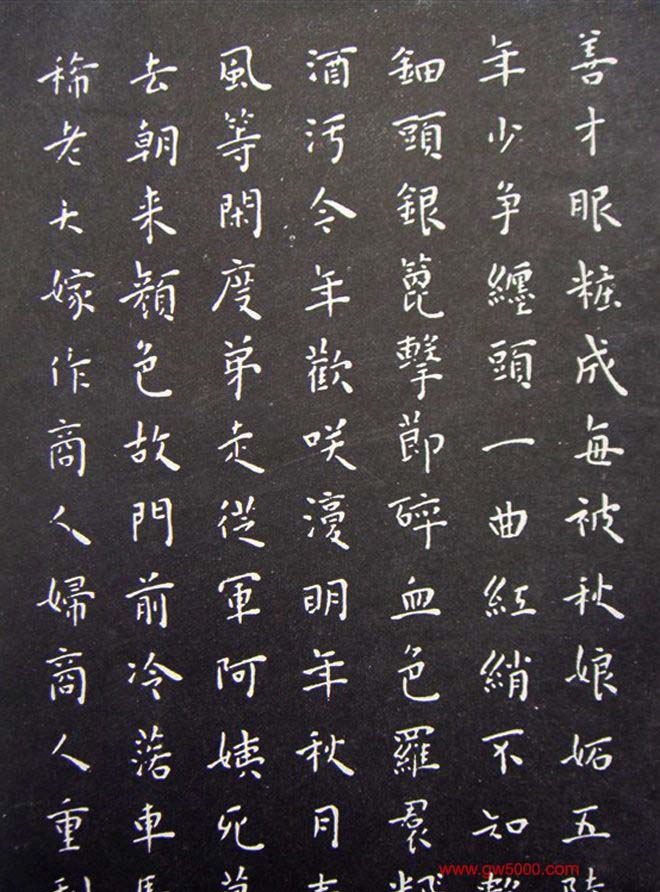 善才眼粧成每被秋娘妬五
年少争纏頭一曲紅綃不知
鈿頭銀篦擊節碎血色羅裠
酒污今年歡咲復明年秋月
風等閑度弟走從軍阿姨死
去朝来顔色故門前冷落車
稀老大嫁作商人婦商人重
www.gw5000.com